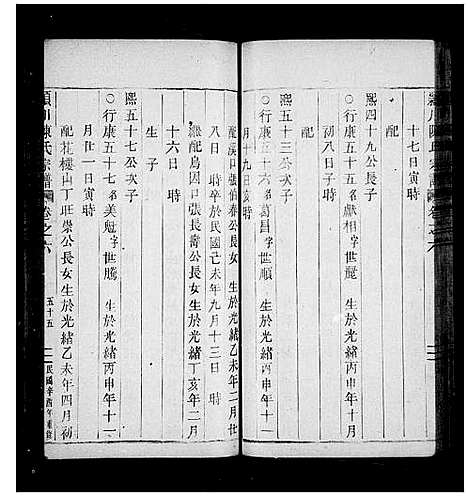 潁川陳氏宗譜 卷之六
十七日寅時
熙四十九公長子
○行康五十五名獻相字世龍 生於光緒丙申年十一
月初八日子時
配
熙五十三公次子
○行康五十六名葛昌字世順 生於光緒丙申年十一
月十九日亥時
配溪口張伯春公長女 生於光緒乙未年二月
八日 時卒於民國己未年九月十三日 時
繼配烏因口張長壽公長女生於光緒丁亥年二月
十六日 時
生子
熙五十七公次子
○行康五十七名美魁字世騰 生於光緒丙申年十一
月廿一日寅時
配花樓山丁旺崇公長女生於光緒乙未年四月初
潁川陳氏宗譜 卷之六 五十五 民國辛酉年重修